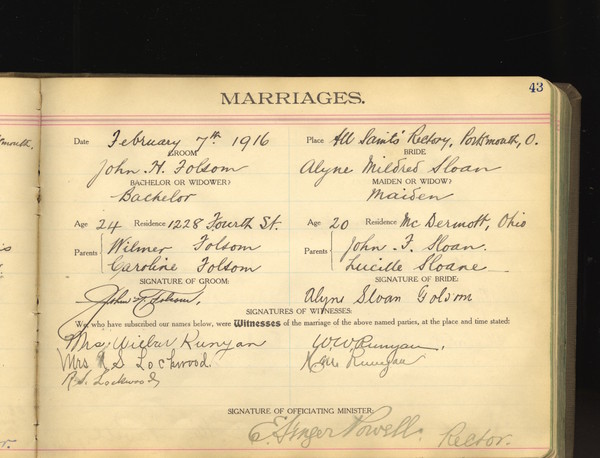 43
MARRIAGES.
Date February 7th 1916 Place All Saints' Rectory, Portsmouth, O.
GROOM BRIDE
John H. Folsom Alyne Mildred Sloan
BACHELOR OR WIDOWER? MAIDEN OR WIDOW?
Bachelor Maiden
Age 24 Residence 1228 Fourth St. Age 20 Residence Mc Dermott, Ohio
Parents Wilmer Folsom Parents John F. Sloan.
Caroline Folsom Lucille Sloane
SIGNATURE OF GROOM: SIGNATURE OF BRIDE:
John Folsom. Alyne Sloan Golsom
SIGNATURES OF WITNESSES:
We, who have subscribed our names below, were Witnesses of the marriage of the above named parties, at the place and time stated:
Mrs. Wilbur Runyan W. W. Runyan.
Mrs R S Lockwood. Runyan
R. S. Lockwood
SIGNATURE OF OFFICIATING MINISTER:
E. Ainger Powell. Rector.